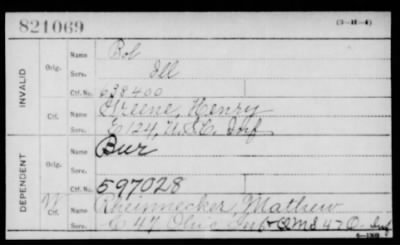 821069
(3-H-4)
INVALID
Orig.
Name Bob
Serv. Ill
Ctf. No. 638400
Ctf.
Name Greene, Henry
Serv. G 124, U.S.C. Inf
DEPENDENT
Orig.
Name Bur
Serv.
Ctf. No. 597028
W Ctf.
Name Rheinnecker, Mathew
Serv. C 47 Ohio Inf & QMS 47 O Inf